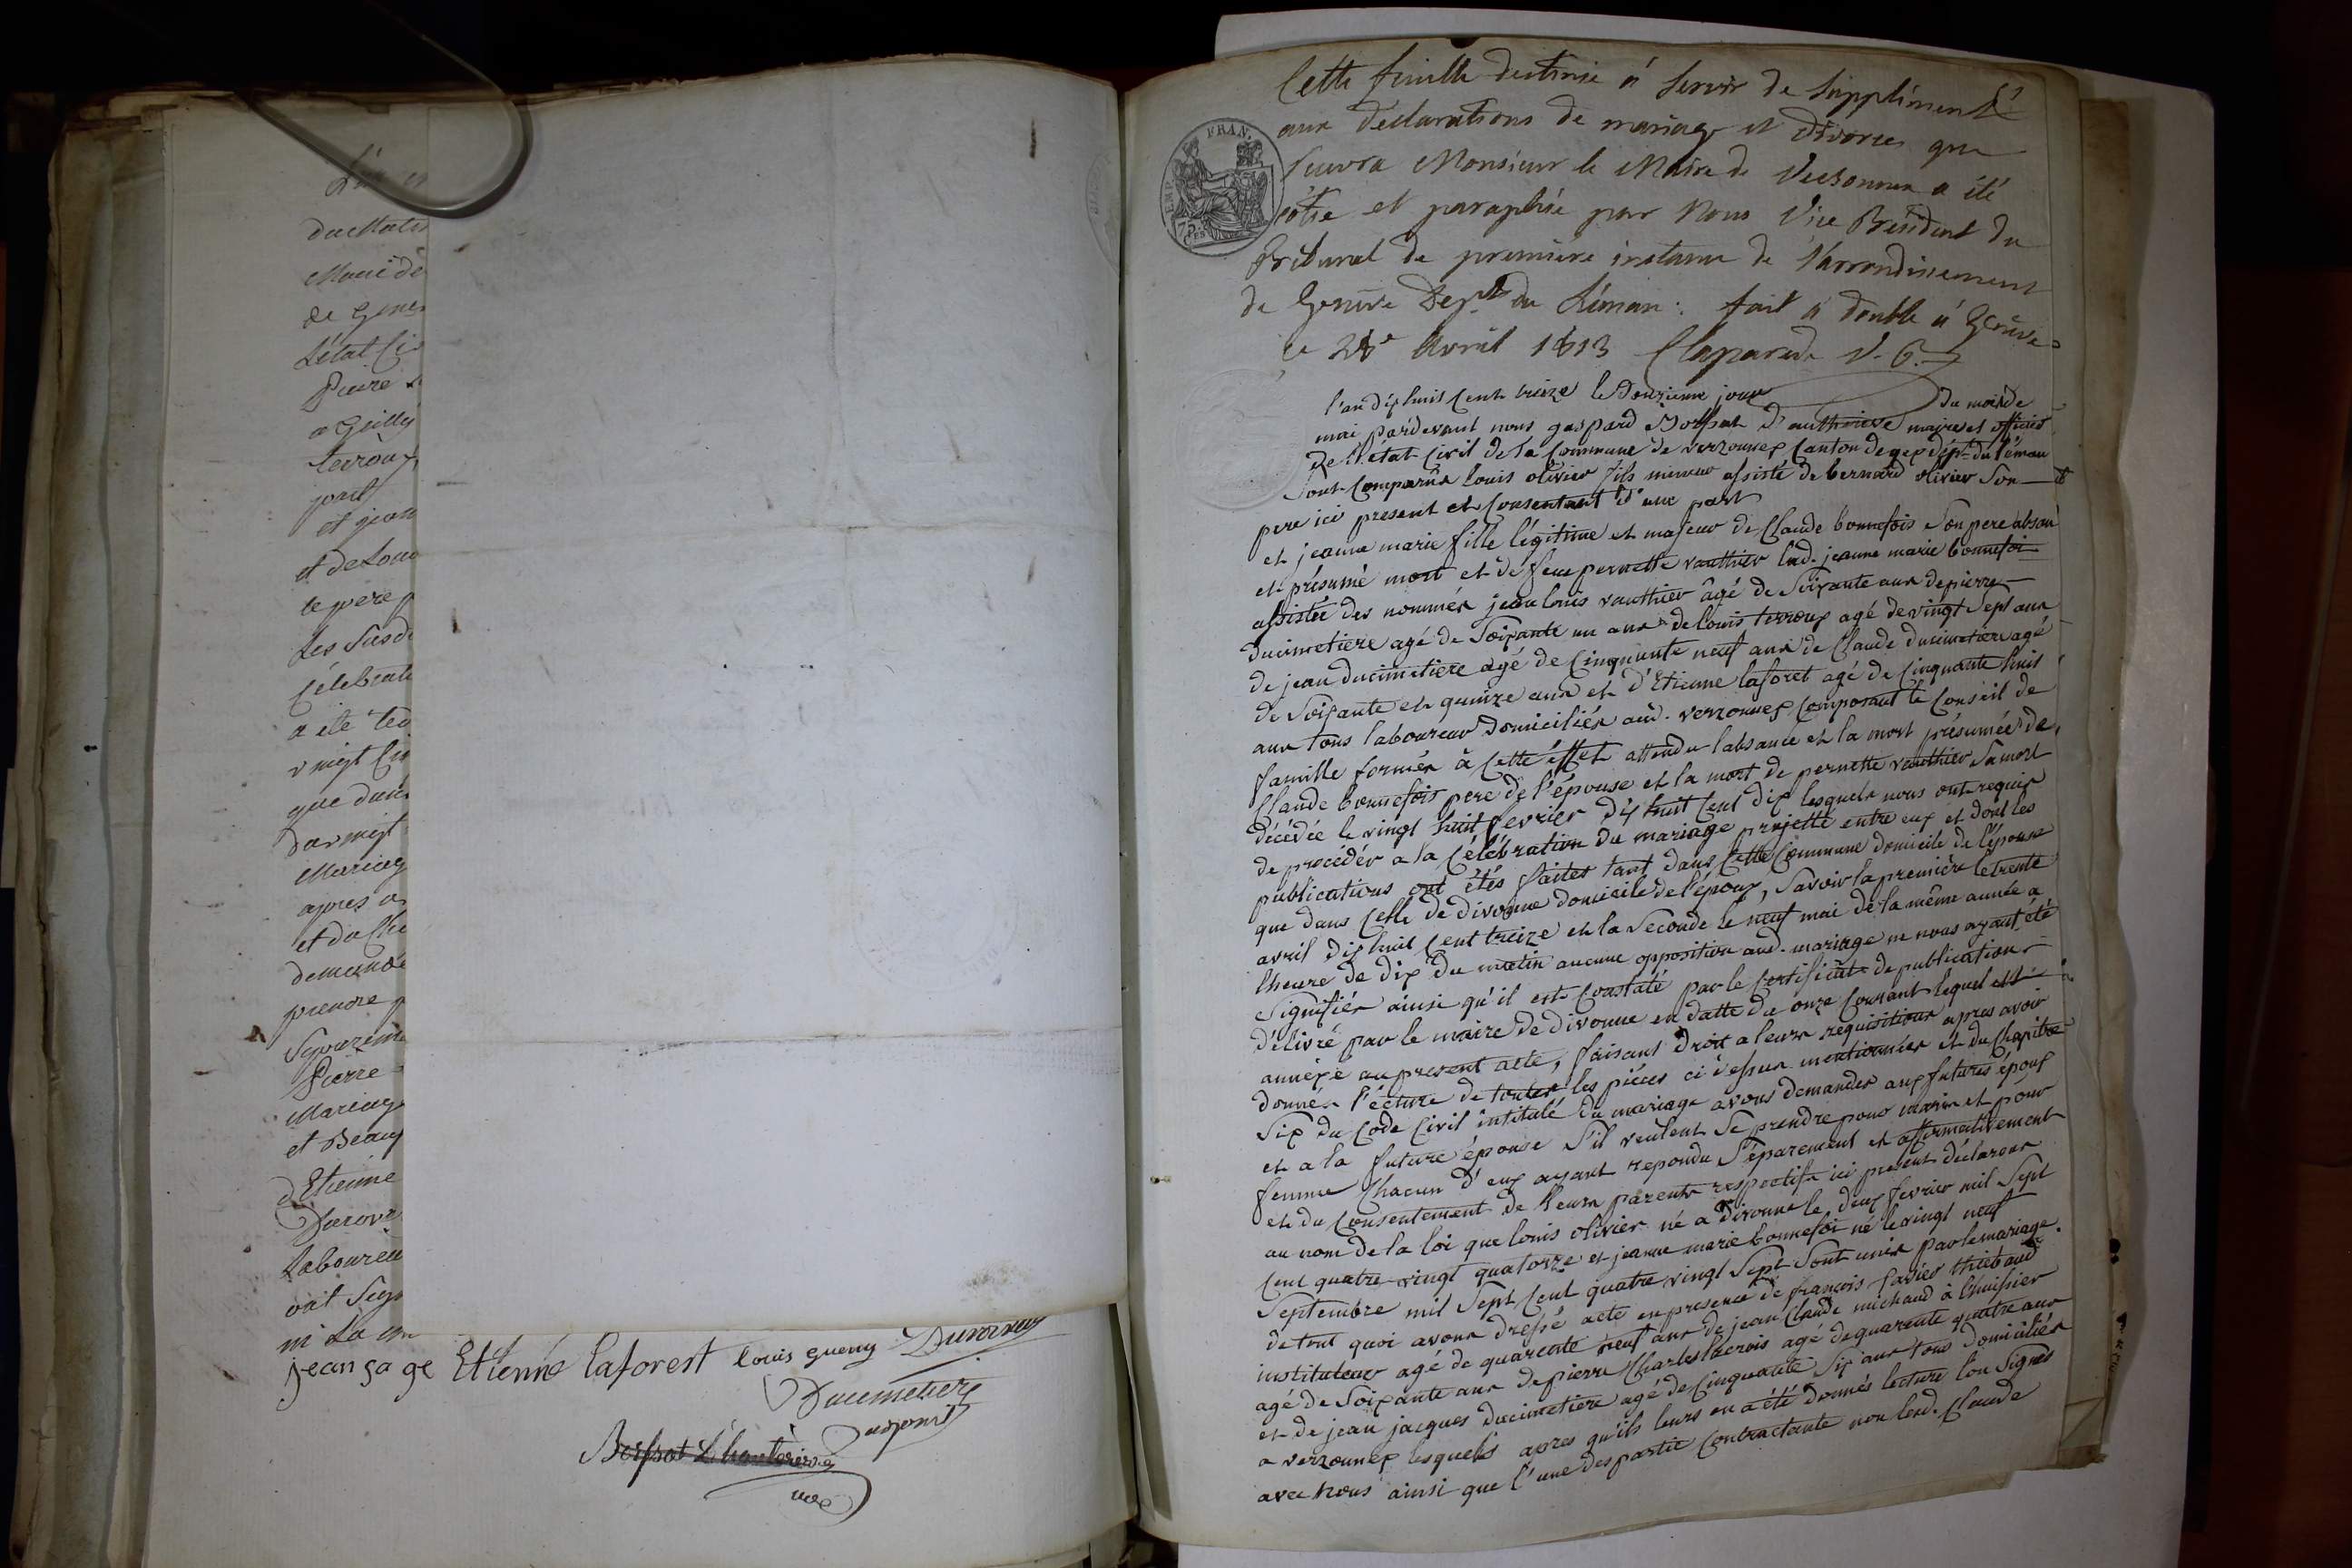 du
Maire de
de
L'état Ci
Pierre
a Grilly
terroux
part
et jean
et de Loui
le pere p
Les Susd
Célébrati
a été
vingt
que dans
Mariag
apres a
et du Cha
demandé
prendre p
Separeme
Pierre
Mariage
et Beaup
d'Etienne
Laboureu
ont Sign
ni La
jean sage Etienne laforest louis gueny
Ducimetiere
FRAN.
EMP.
75.
Cette feuille destinée à servir de supplément
aux déclarations de mariage et divorces que
recevra Monsieur le Maire de Versonnex a été
cotée et paraphée par Nous Vice Président du
Tribunal de première instance de l'arrondissement
de Genève Dept. du Léman : fait à double à Genève
ce 28e Avril 1813 Claparede V. P.
l'an dix huit Cent treize le Douzieme jour du mois de
mai pardevant nous gaspard D'authrive maire et officier
de l'état Civil de la Commune de verzonnex Canton de gex dépt. du léman
Sont Comparus louis olivier fils mineur assisté de bernard olivier Son
pere ici present et Consentant d'une part
et jeanne marie fille légitime et majeur de Claude bonnefois Son pere absan
et présumé mort et de feue pernette vauthier lad. jeanne marie bonnefoi
assistée des nommés jean louis vauthier âgé de Soixante ans de pierre
ducimetiere agé de Soixante un ans de louis terroux agé de vingt Sept ans
de jean ducimetiere agé de Cinquante neuf ans de Claude ducimetiere agé
de Soixante et quinze ans et d'Etienne laforet agé de Cinquante huit
ans tous laboureur Domiciliés aud. verzonnex Composant le Conseil de
famille formés à Cette éffet attendu l'absance et la mort présumée de
Claude bonnefois pere de l'épouse et la mort de pernette vauthier Sa mort
décédée le vingt huit fevrier dix huit Cent dix lesquels nous ont requis
de procéder a la Célébration du mariage projetté entre eux et dont les
publications ont étés faites tant dans Cette Commune domicile de l'épouse
que dans Celle de divonne domicile de l'époux, Savoir la première le trente
avril dix huit Cent treize et la Seconde le neuf mai de la même année a
lheure de dix du matin aucune opposition aud. mariage ne nous ayant été
Signifiés ainsi qu'il est Constaté par le Certificat de publication
délivré par le maire de divonne en datte du onze Courant lequel est
annéxé au present acte, faisant droit a leurs requisitions apres avoir
donnés l'écture de toutes les piéces ci dessus mentionnées et du Chapitre
Six du Code Civil intitulé du mariage avons demander aux futures époux
et a la future épouse S'il veulent Se prendre pour marie et pour
femme Chacun d'eux ayant repondu Séparement et affirmativement
et du Consentement de leurs parents respectifs ici present déclarons
au nom de la loi que louis olivier né a divonne le deux fevrier mil Sept
Cent quatre vingt quatorze et jeanne marie bonnefoi né le vingt neuf
Septembre mil Sept Cent quatre vingt Sept Sont unis par le mariage.
de tout quoi avons dressé acte en presence de françois favier thiebaud
instituteur agé de quarente neuf ans de jean Claude michaud à l'huissier
agé de Soixante ans de pierre Charles lacrois agé de quarente quatre ans
et de jean jacques ducimetiere agé de Cinquante Six ans tous domiciliés
a verzonnex lesquels apres qu'ils leurs en a été donnés lecture l'on Signés
avec nous ainsi que l'une des partie Contractante non led. Claude